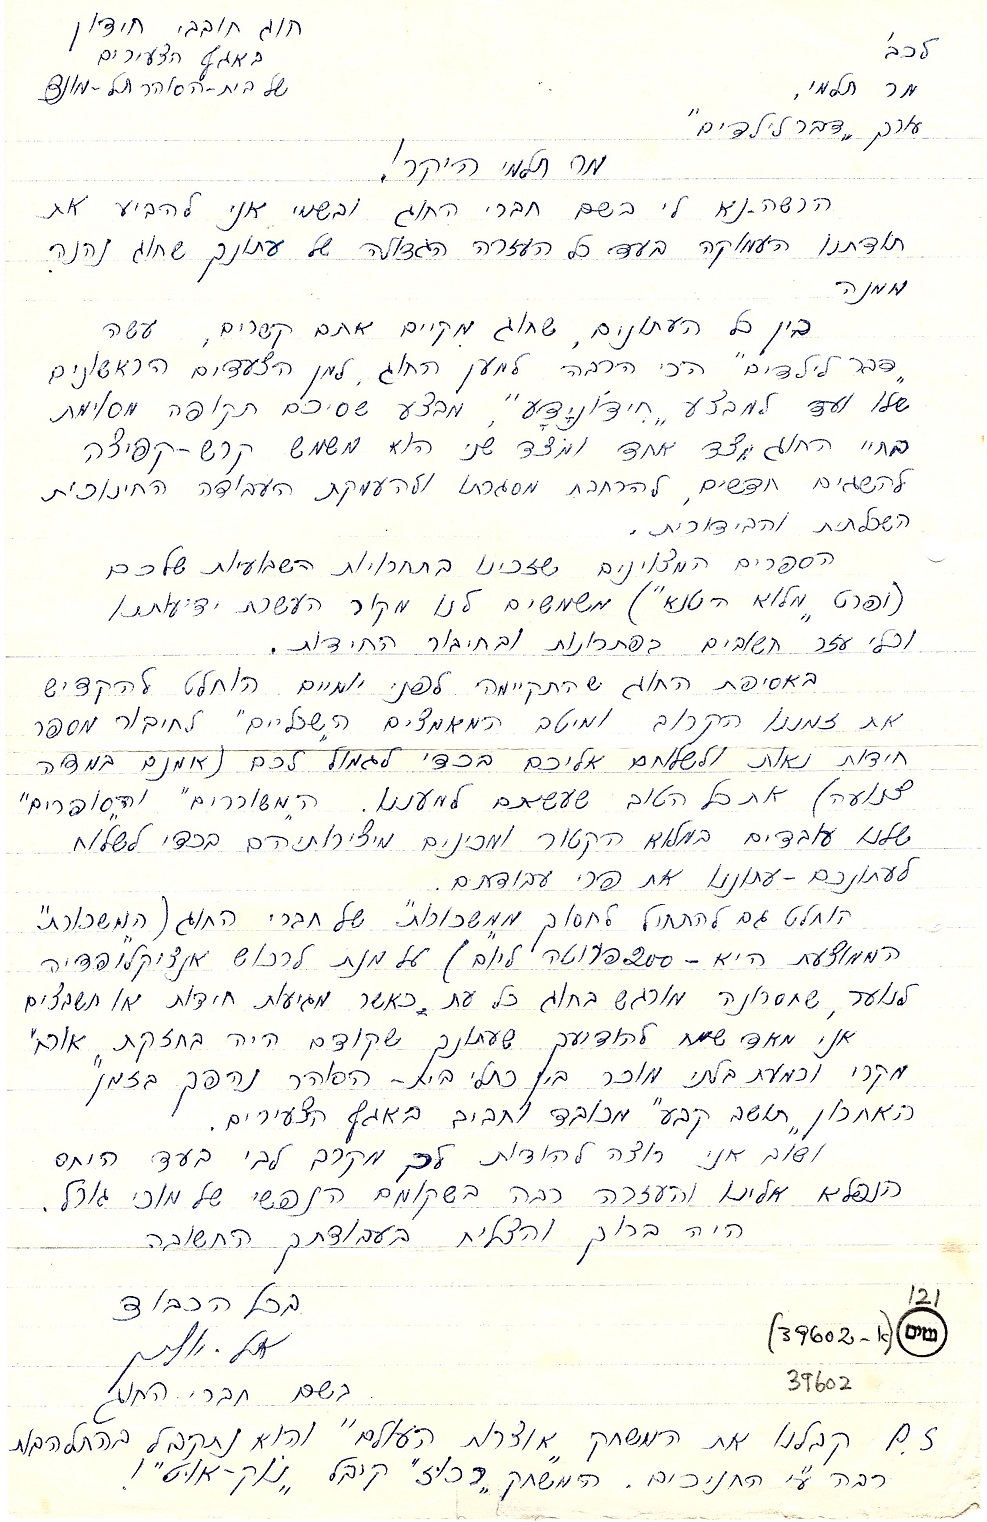 חוג חובבי חידון
באגף הצעירים
של בית-הסוהר תל-מונד
לכב'
מר תלמי,
עורך "דבר לילדים"
מר תלמי היקר!
הרשה-נא לי בשם חברי החוג ובשמי אני להביע את
תודתנו העמוקה בעד כל העזרה הגדולה של עתונך שחוג נהנה
ממנה
בין כל העתונים, שחוג מקיים אתם קשרים, עשה
"דבר לילדים" הכי הרבה למען החוג, למן הצעדים הראשונים
שלו ועד למבצע "חידונידע", מבצע שסיכם תקופה מסוימת
בחיי החוג מצד אחד ומצד שני הוא משמש קרש-קפיצה
להשגים חדשים, להרחבת מסגרתו ולהעמקת העבודה החינוכית
השכלתית והבידורית.
הספרים המצוינים שזכינו בתחרויות השבועיות שלכם
(ופרט "מלוא הטנא") משמשים לנו מקור העשרת ידיעתנו
וכלי עזר חשובים בפתרונות ובחיבור החידות.
באסיפת החוג שהתקיימה לפני יומיים הוחלט להקדיש
את זמננו הקרוב ומיטב המאמצים "השכליים" לחיבור מספר
חידות נאות ולשלוחם אליכם בכדי לגמול לכם (אומנם במדיה
צנועה) את כל הטוב שעשיתם למעננו. ה"משוררים" וה"סופרים"
שלנו עובדים במלוא הקטור ומכינים מיצירותיהם בכדי לשלוח
לעתונכם-עתוננו את פרי עבודתם.
הוחלט גם להתחיל לחסוך מ"משכורות" של חברי החוג (ה"משכורת"
הממוצעת היא - 200 פרוטה ליום) על מנת לרכוש אנציקלופדיה
לנוער, שחסרונה מורגש בחוג כל עת כאשר מגיעות חידות או תשבצים
אני מאד שמח להודיעך שעתונך שקודם היה בחזקת "אורח"
מקרי וכמעת בלתי מוכר בין כתלי בית-הסוהר נהפך בזמן
האחרון "תושב קבע" מכובד וחביב באגף הצעירים.
ושוב אני רוצה להודות לך מקרב לבי בעד היחס
הנפלא אלינו והעזרה רבה בשקומם הנפשי של מוכי גורל.
היה ברוך והצליח בעבודתך החשובה
בכל הכבוד
בשם חברי החוג
121
(39602-א)
39602
P.S קבלנו את המשחק "אוצרות העולם" והוא נתקבל בהתלהבות
רבה ע"י החניכים. המשחק "רכוז" קיבל "נוק-אוט"!